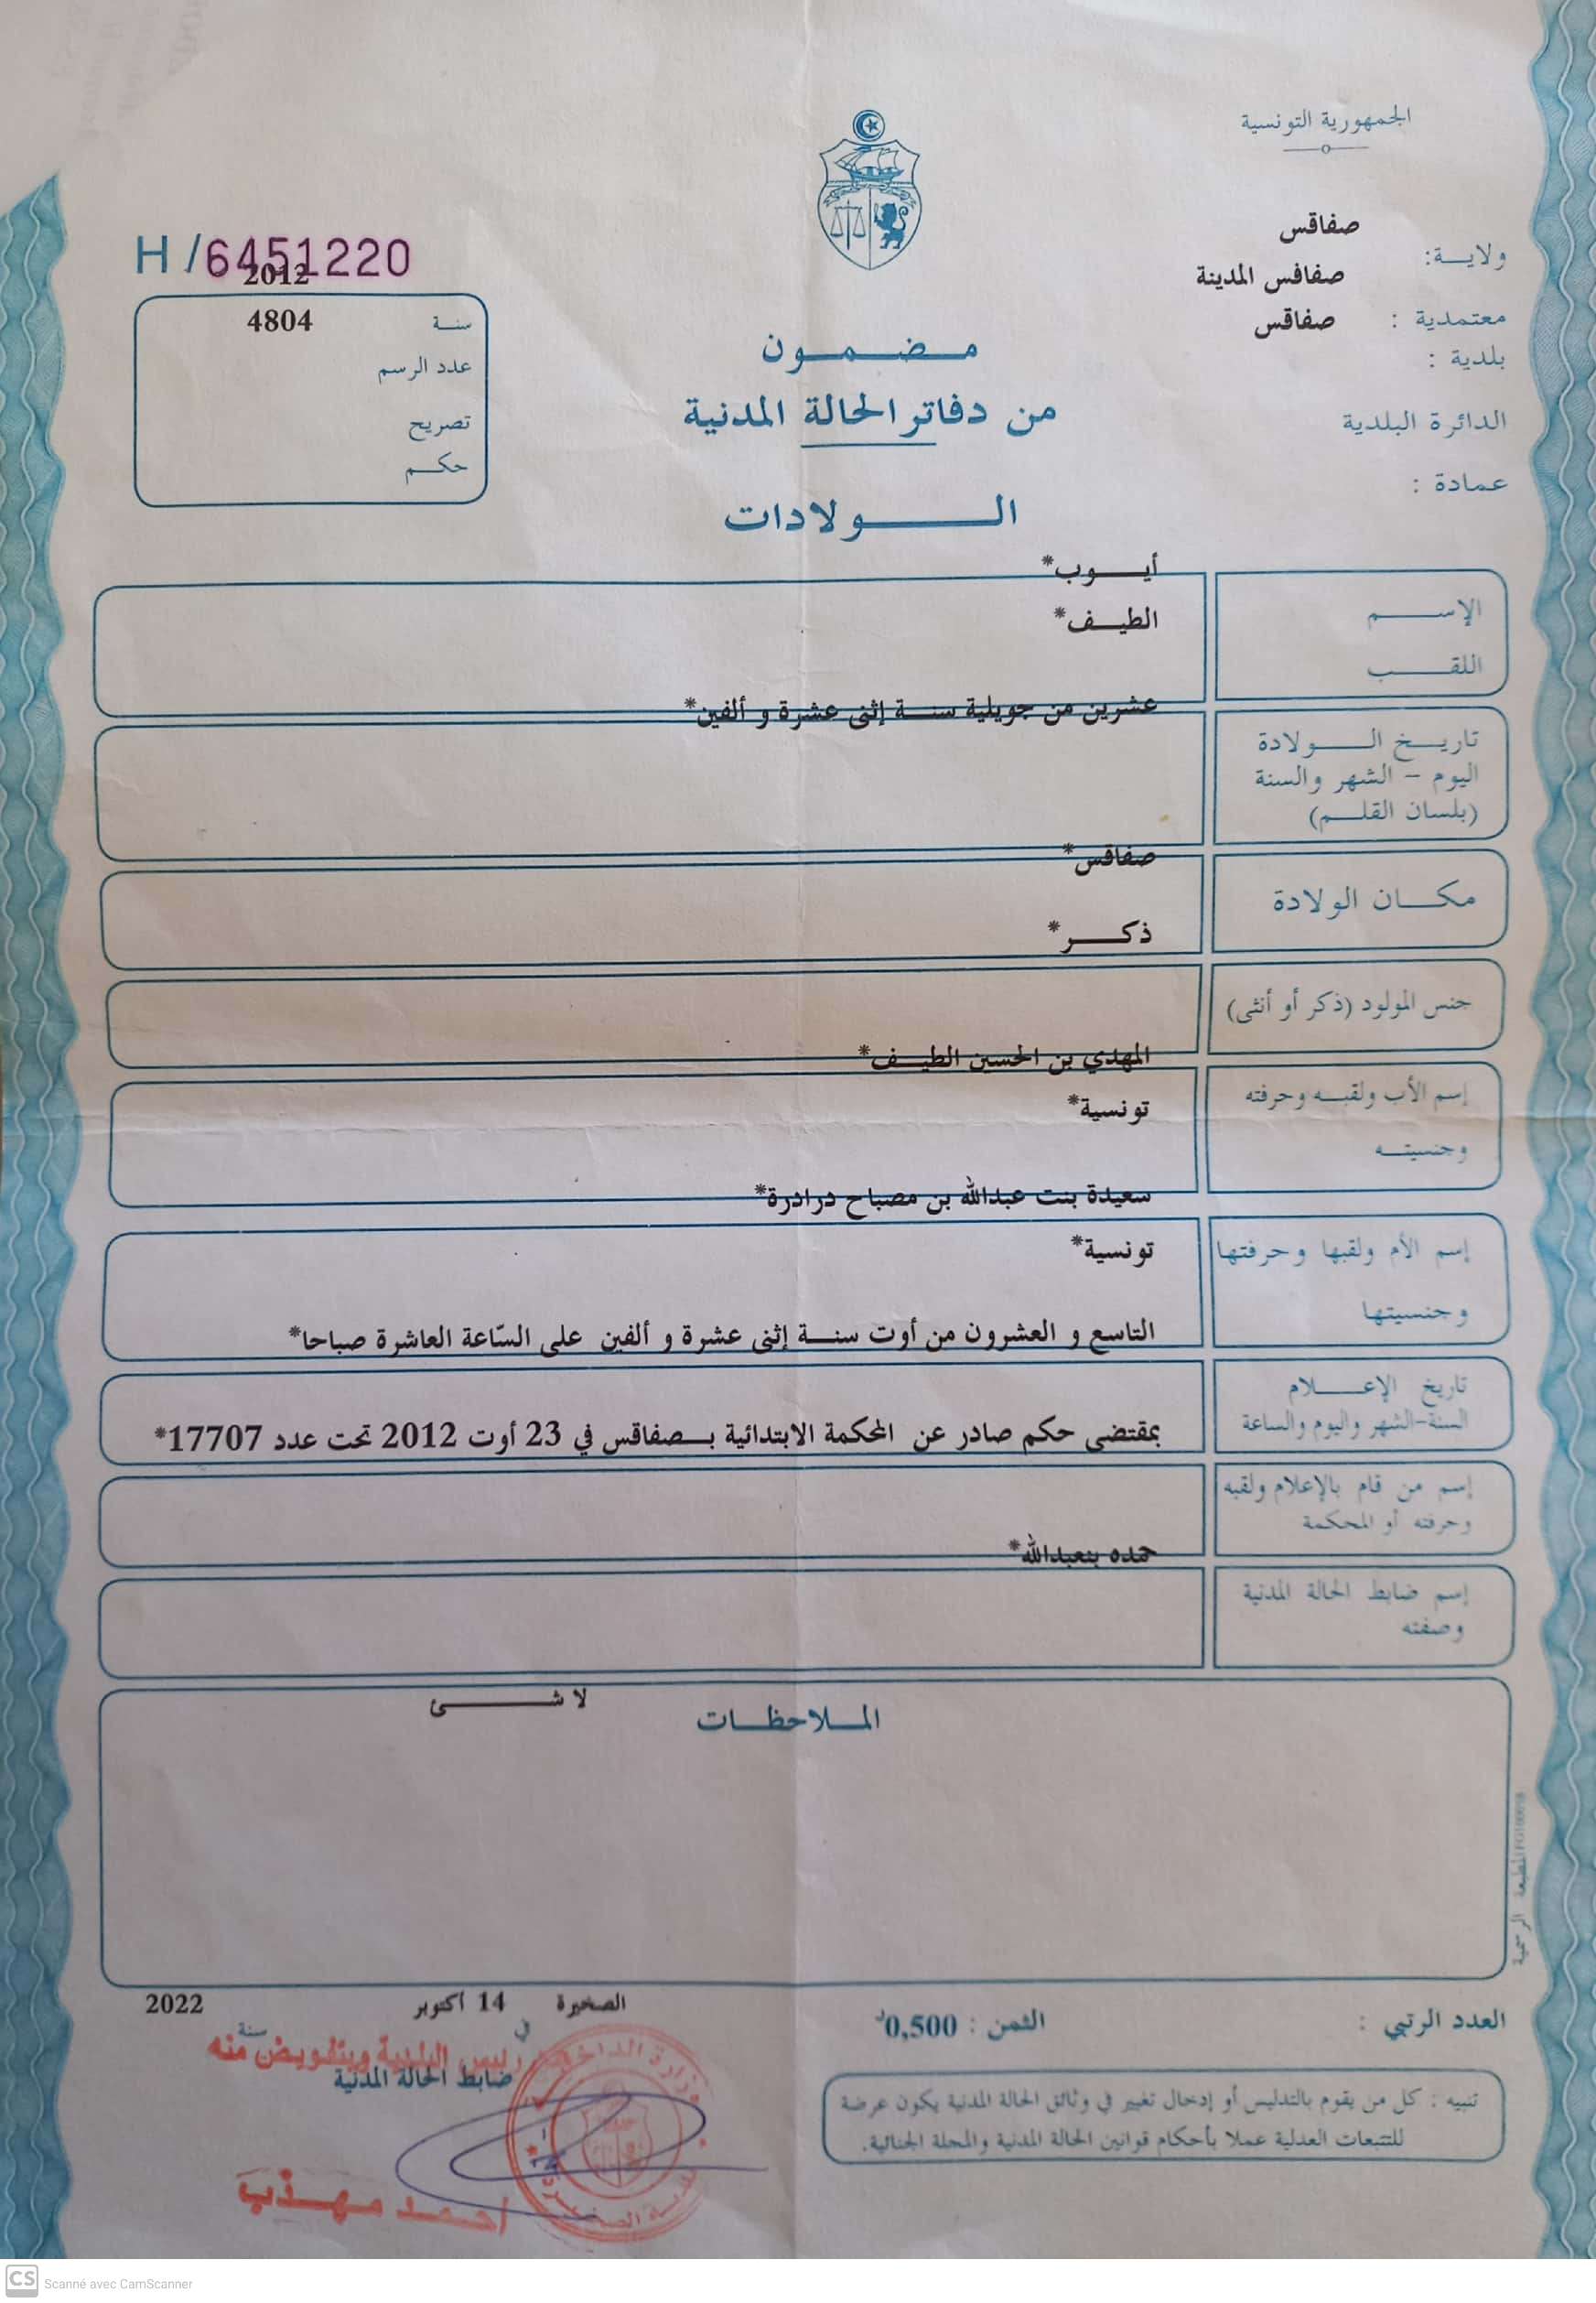 الجمهورية التونسية
صفاقس
ولاية:
صفاقس المدينة
معتمدية :
صفاقس
بلدية :
الدائرة البلدية
عمادة :
H/6451220
2012
سنة
4804
عدد الرسم
تصريح
حكم
مضمون
من دفاتر الحالة المدنية
الولادات
أيوب*
الإسم
الطيف*
اللقب
عشرين من جويلية سنة إثنى عشرة و ألفين*
تاريخ الولادة
اليوم - الشهر والسنة
(بلسان القلم)
صفاقس*
مكان الولادة
ذكر*
جنس المولود (ذكر أو أنثى)
المهدي بن الحسين الطيف*
إسم الأب ولقبه وحرفته
تونسية*
وجنسيته
سعيدة بنت عبدالله بن مصباح درادرة*
إسم الأم ولقبها وحرفتها
تونسية*
وجنسيتها
التاسع و العشرون من أوت سنة إثنى عشرة و ألفين على السّاعة العاشرة صباحا*
تاريخ الإعلام
السنة-الشهر واليوم والساعة
بمقتضى حكم صادر عن المحكمة الابتدائية بصفاقس في 23 أوت 2012 تحت عدد 17707*
إسم من قام بالإعلام ولقبه
وحرفته أو المحكمة
حمده بنعبدالله*
إسم ضابط الحالة المدنية
وصفته
الملاحظات
لا شئ
المطبعة الرسمية
العدد الرتبي :
الثمن : 0,500د
تنبيه : كل من يقوم بالتدليس أو إدخال تغيير في وثائق الحالة المدنية يكون عرضة
للتتبعات العدلية عملا بأحكام قوانين الحالة المدنية والمجلة الجنائية.
الصخيرة في 14 أكتوبر سنة 2022
رئيس البلدية وبتفويض منه
ضابط الحالة المدنية
وزارة الداخلية
بلدية الصخيرة
احمد مهذب
CS Scanné avec CamScanner